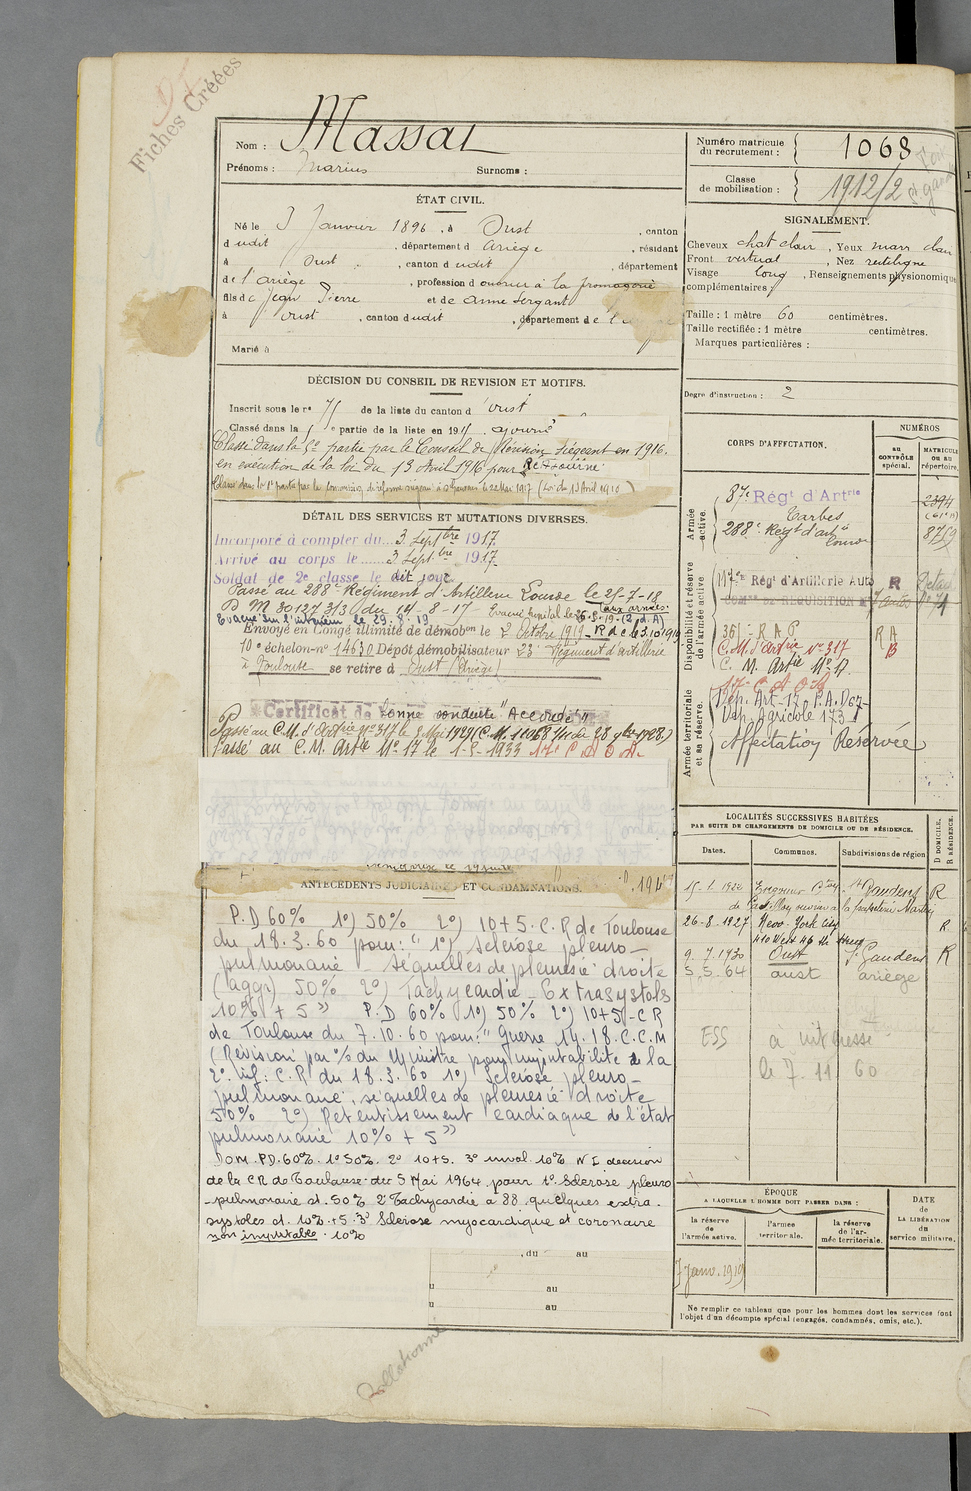 Fiches Créées
Nom : Massat
Prénoms : Marius Surnoms :
Numéro matricule du recrutement : 1068
Classe de mobilisation : 1912/2
ÉTAT CIVIL.
Né le 3 Janvier 1896, à Oust, canton
dudit, département d Ariège, résidant
à Oust, canton dudit, département
de l'Ariège, profession d ouvrier à la fromagerie
fils de Jean Pierre et de Anne Sergant
à Oust, canton dudit, département de
Marié à
SIGNALEMENT.
Cheveux chat clair, Yeux marr clair
Front vertical, Nez rectiligne
Visage long, Renseignements physionomiques
complémentaires :
Taille : 1 mètre 60 centimètres.
Taille rectifiée : 1 mètre centimètres.
Marques particulières :
Degré d'instruction : 2
DÉCISION DU CONSEIL DE REVISION ET MOTIFS.
Inscrit sous le n° 75 de la liste du canton d'Oust
Classé dans la 5e partie de la liste en 191 ajourné
Classé dans la 5e partie par le Conseil de Révision siégeant en 1916.
en exécution de la loi du 13 Avril 1916 pour Réajourné
Classé dans la 1e partie par la Commission de réforme siégeant à St Girons le 22 Mai 1917 (Loi du 13 Avril 1910)
DÉTAIL DES SERVICES ET MUTATIONS DIVERSES.
Incorporé à compter du 3 Septbre 1917
Arrivé au corps le 3 Septbre 1917
Soldat de 2e classe le dit jour
Passé au 288e Régiment d'Artillerie Lourde le 25-7-18
D M 30127 3/3 du 14-8-17
aux armées
Evacué sur l'intérieur le 29.8.19
Envoyé en Congé illimité de démobon le 2 Octobre 1919 - R d C le 3.10.1919
10e échelon-n° 14630 Dépôt démobilisateur 23e Régiment d'artillerie
à Toulouse se retire à Oust (Ariège)
Certificat de bonne conduite "Accordé"
Passé au C.M. d'Artrie N° 317 le 2 Mai 1929 (C.M. 11068 du 28 9bre 1928)
Passé au C.M. Artie N° 17 le 1-8-1933 17e C A O A
CORPS D'AFFECTATION.
NUMÉROS
AU CONTRÔLE spécial.
MATRICULE OU AU répertoire.
Armée active.
87e Régt d'Artrie
Tarbes
2394
288e Régt d'arte lourde
8759
Disponibilité et réserve de l'armée active
117e Régt d'Artillerie Auto R
COMon DE REQUISITION
361e R A P R A
C.M. d'Artrie N° 317 B
C. M. Artie N° 17
17e C A O A
Armée territoriale et sa réserve.
Dép. Art. 17. P.A.D 67
Dép. Agricole 173
Affectation Réservée
LOCALITÉS SUCCESSIVES HABITÉES
PAR SUITE DE CHANGEMENTS DE DOMICILE OU DE RÉSIDENCE.
Dates. Communes. Subdivisions de région D DOMICILE, R RÉSIDENCE.
15-1-1922 St Gaudens R
26-8-1927 New-York City R
410 West 46 th Street
9.7.1930 Oust St Gaudens R
5.5.64 oust ariège
ESS a intéressé
le 7. 11 60
ANTÉCÉDENTS JUDICIAIRES ET CONDAMNATIONS.
P.D 60% 1°) 50% 2°) 10+5. C.R de Toulouse
du 18.3.60 pour: " 1°) Sclérose pleuro-
pulmonaire - séquelles de pleurésie droite
(aggr) 50% 2°) Tachycardie - Extrasystols
10% + 5 " P.D 60% 1°) 50% 2°) 10+5 - CR
de Toulouse du 7.10.60 pour: " Guerre 14.18.C.C.M
(Révision par % du Ministre pour imputabilité à la
2e inf: C.R du 18.3.60 1°) Sclérose pleuro-
pulmonaire, séquelles de pleurésie droite
50% 2°) Retentissement cardiaque de l'état
pulmonaire 10% + 5 "
Dom. P.D. 60%. 1° 50%. 2° 10+5. 3° inval. 10% N I décision
de la CR de Toulouse du 5 Mai 1964 pour 1° Sclérose pleuro
-pulmonaire at. 50% 2° Tachycardie à 88 quelques extra-
systoles at. 10% +5 3° Sclérose myocardique et coronaire
non imputable. 10%
, du au
au
au
ÉPOQUE
A LAQUELLE L'HOMME DOIT PASSER DANS :
la réserve de l'armée active.
l'armée territoriale.
la réserve de l'armée territoriale.
DATE DE LA LIBÉRATION du service militaire.
Janv. 1919
Ne remplir ce tableau que pour les hommes dont les services font
l'objet d'un décompte spécial (engagés, condamnés, omis, etc.).
Collationné